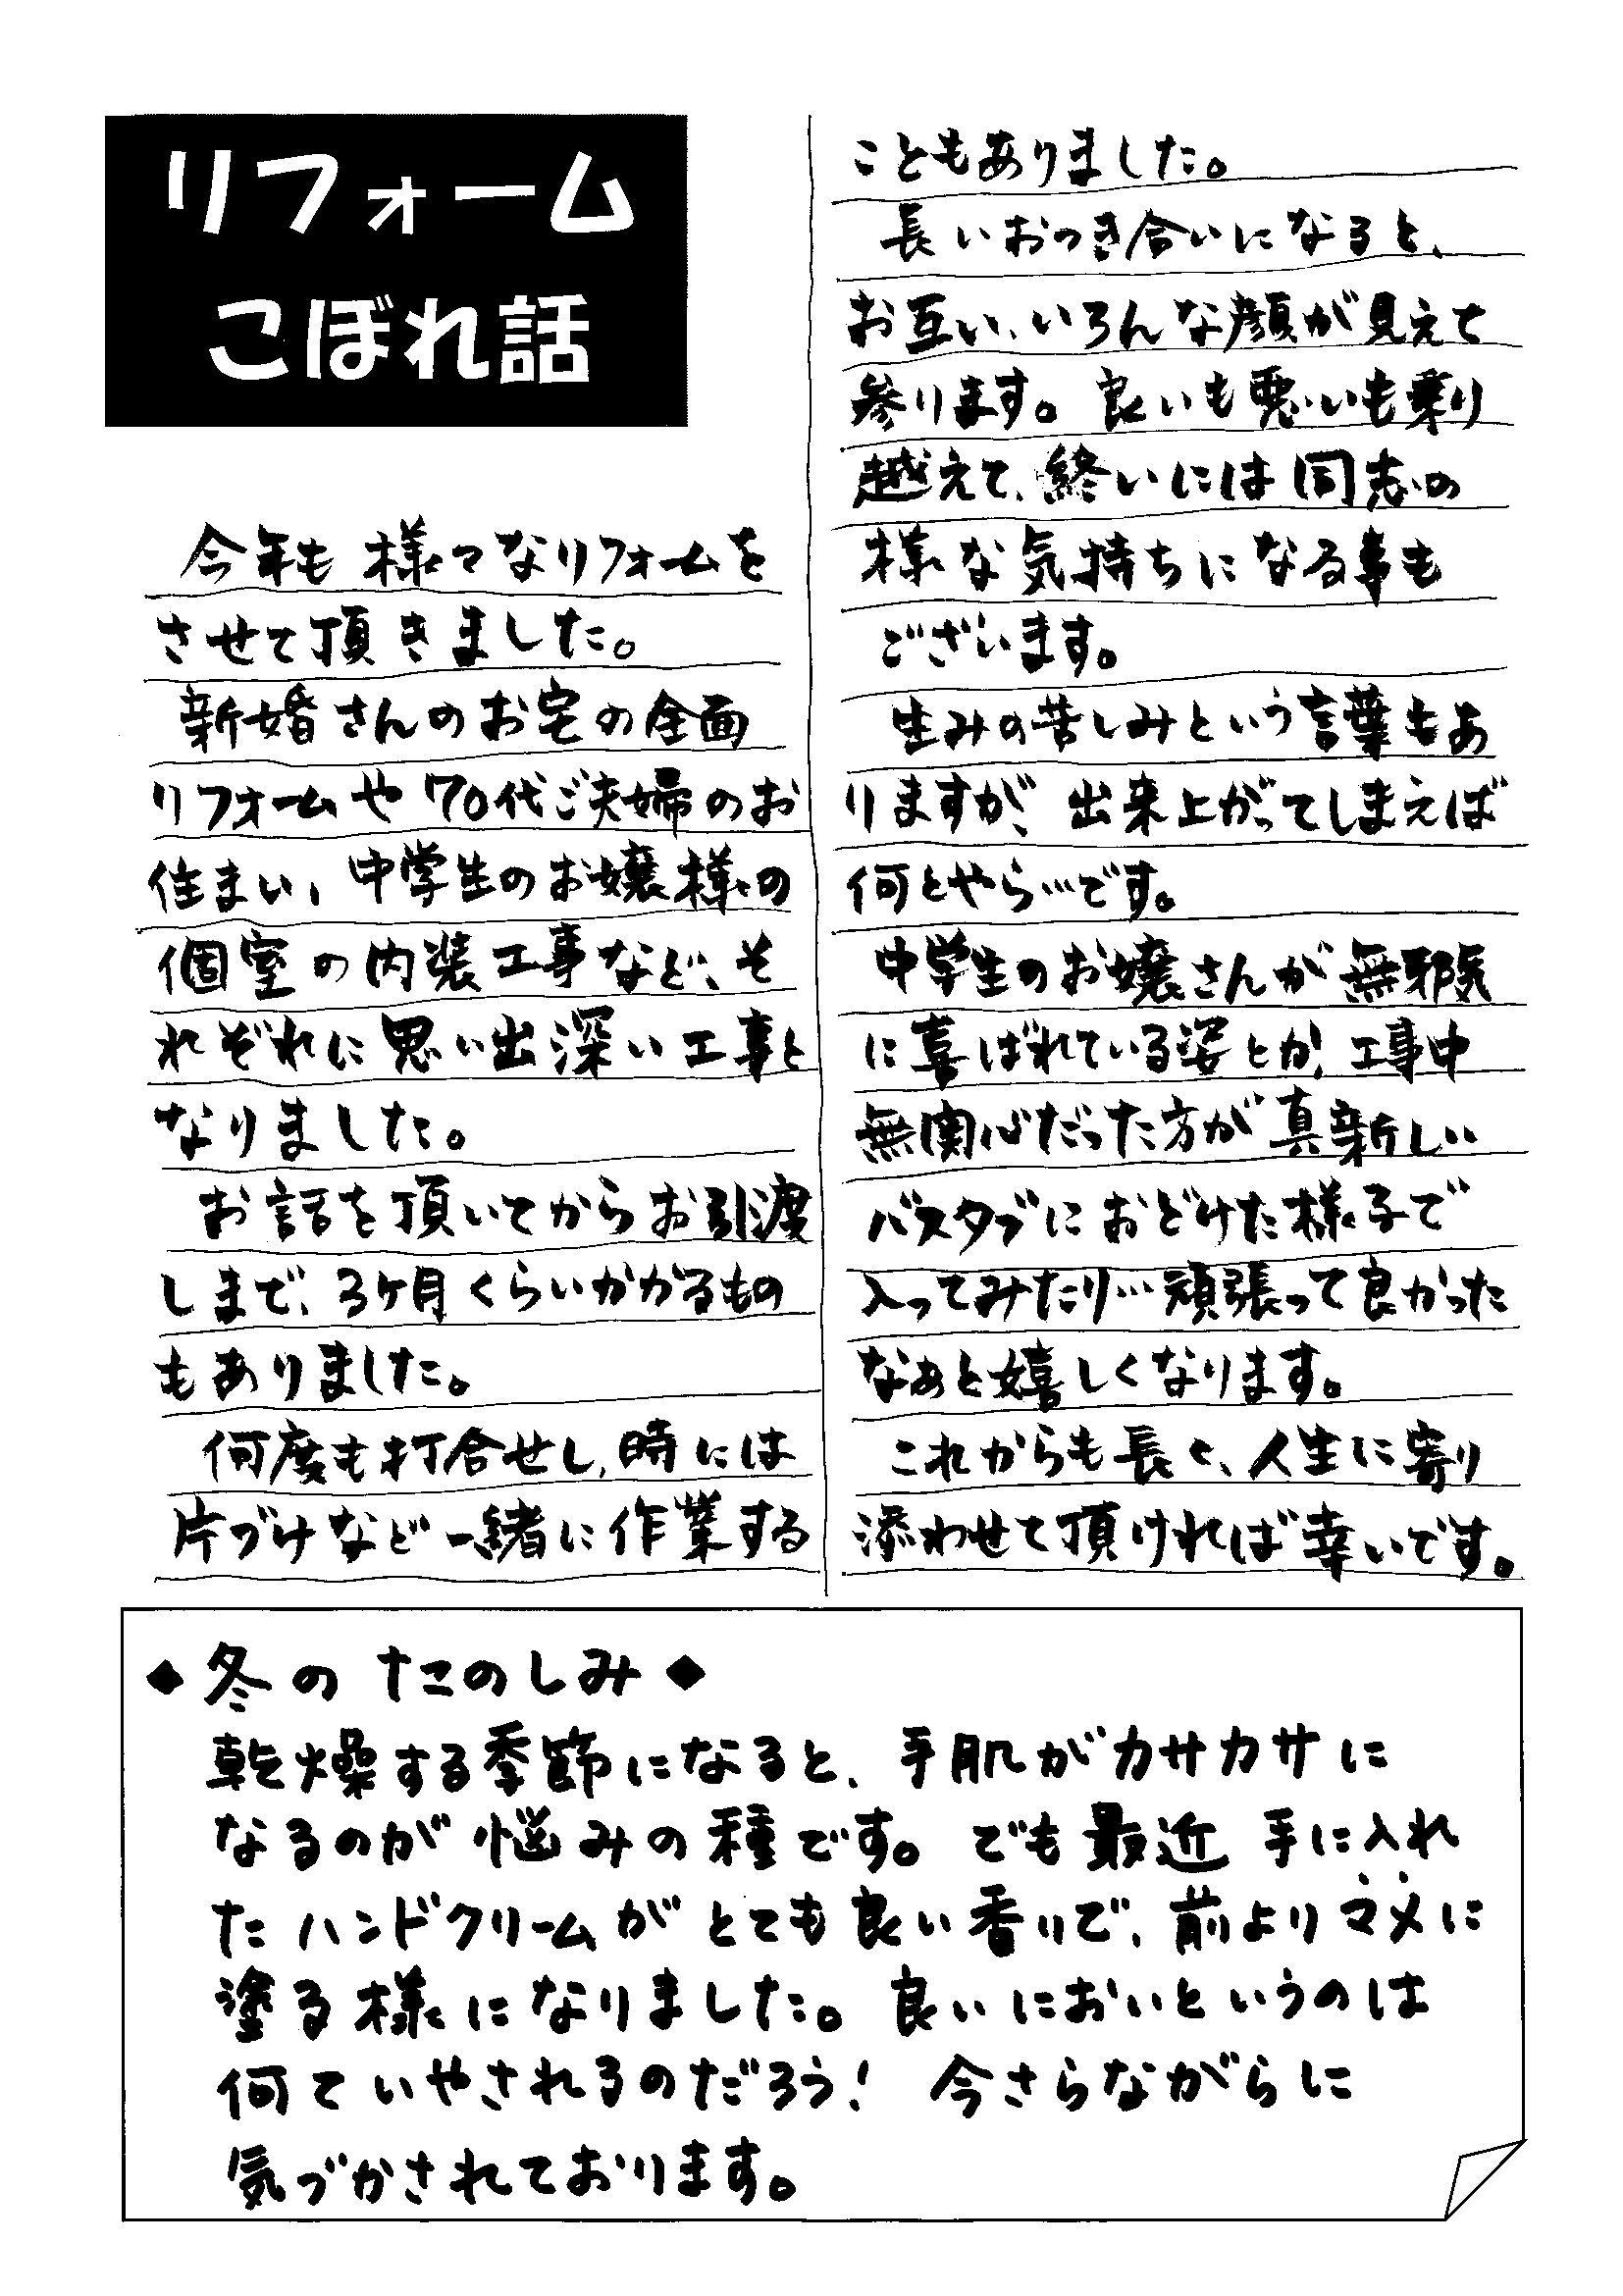 リフォーム
こぼれ話
今年も様々なリフォームを
させて頂きました。
新婚さんのお宅の全面
リフォームや70代ご夫婦のお
住まい、中学生のお嬢様の
個室の内装工事など、そ
れぞれに思い出深い工事と
なりました。
お話を頂いてからお引渡
しまで、3ヶ月くらいかかるもの
もありました。
何度も打合せし、時には
片づけなど一緒に作業する
こともありました。
長いおつき合いになると、
お互い、いろんな顔が見えて
参ります。良いも悪いも乗り
越えて、終いには同志の
様な気持ちになる事も
ございます。
生みの苦しみという言葉もあ
りますが、出来上がってしまえば
何とやら…です。
中学生のお嬢さんが無邪気
に喜ばれている姿とか、工事中
無関心だった方が真新しい
バスタブにおどけた様子で
入ってみたり…頑張って良かった
なぁと嬉しくなります。
これからも長く、人生に寄り
添わせて頂ければ幸いです。
◆冬のたのしみ◆
乾燥する季節になると、手肌がカサカサに
なるのが悩みの種です。でも最近手に入れ
たハンドクリームがとても良い香りで、前よりマメに
塗る様になりました。良いにおいというのは
何ていやされるのだろう! 今さらながらに
気づかされております。